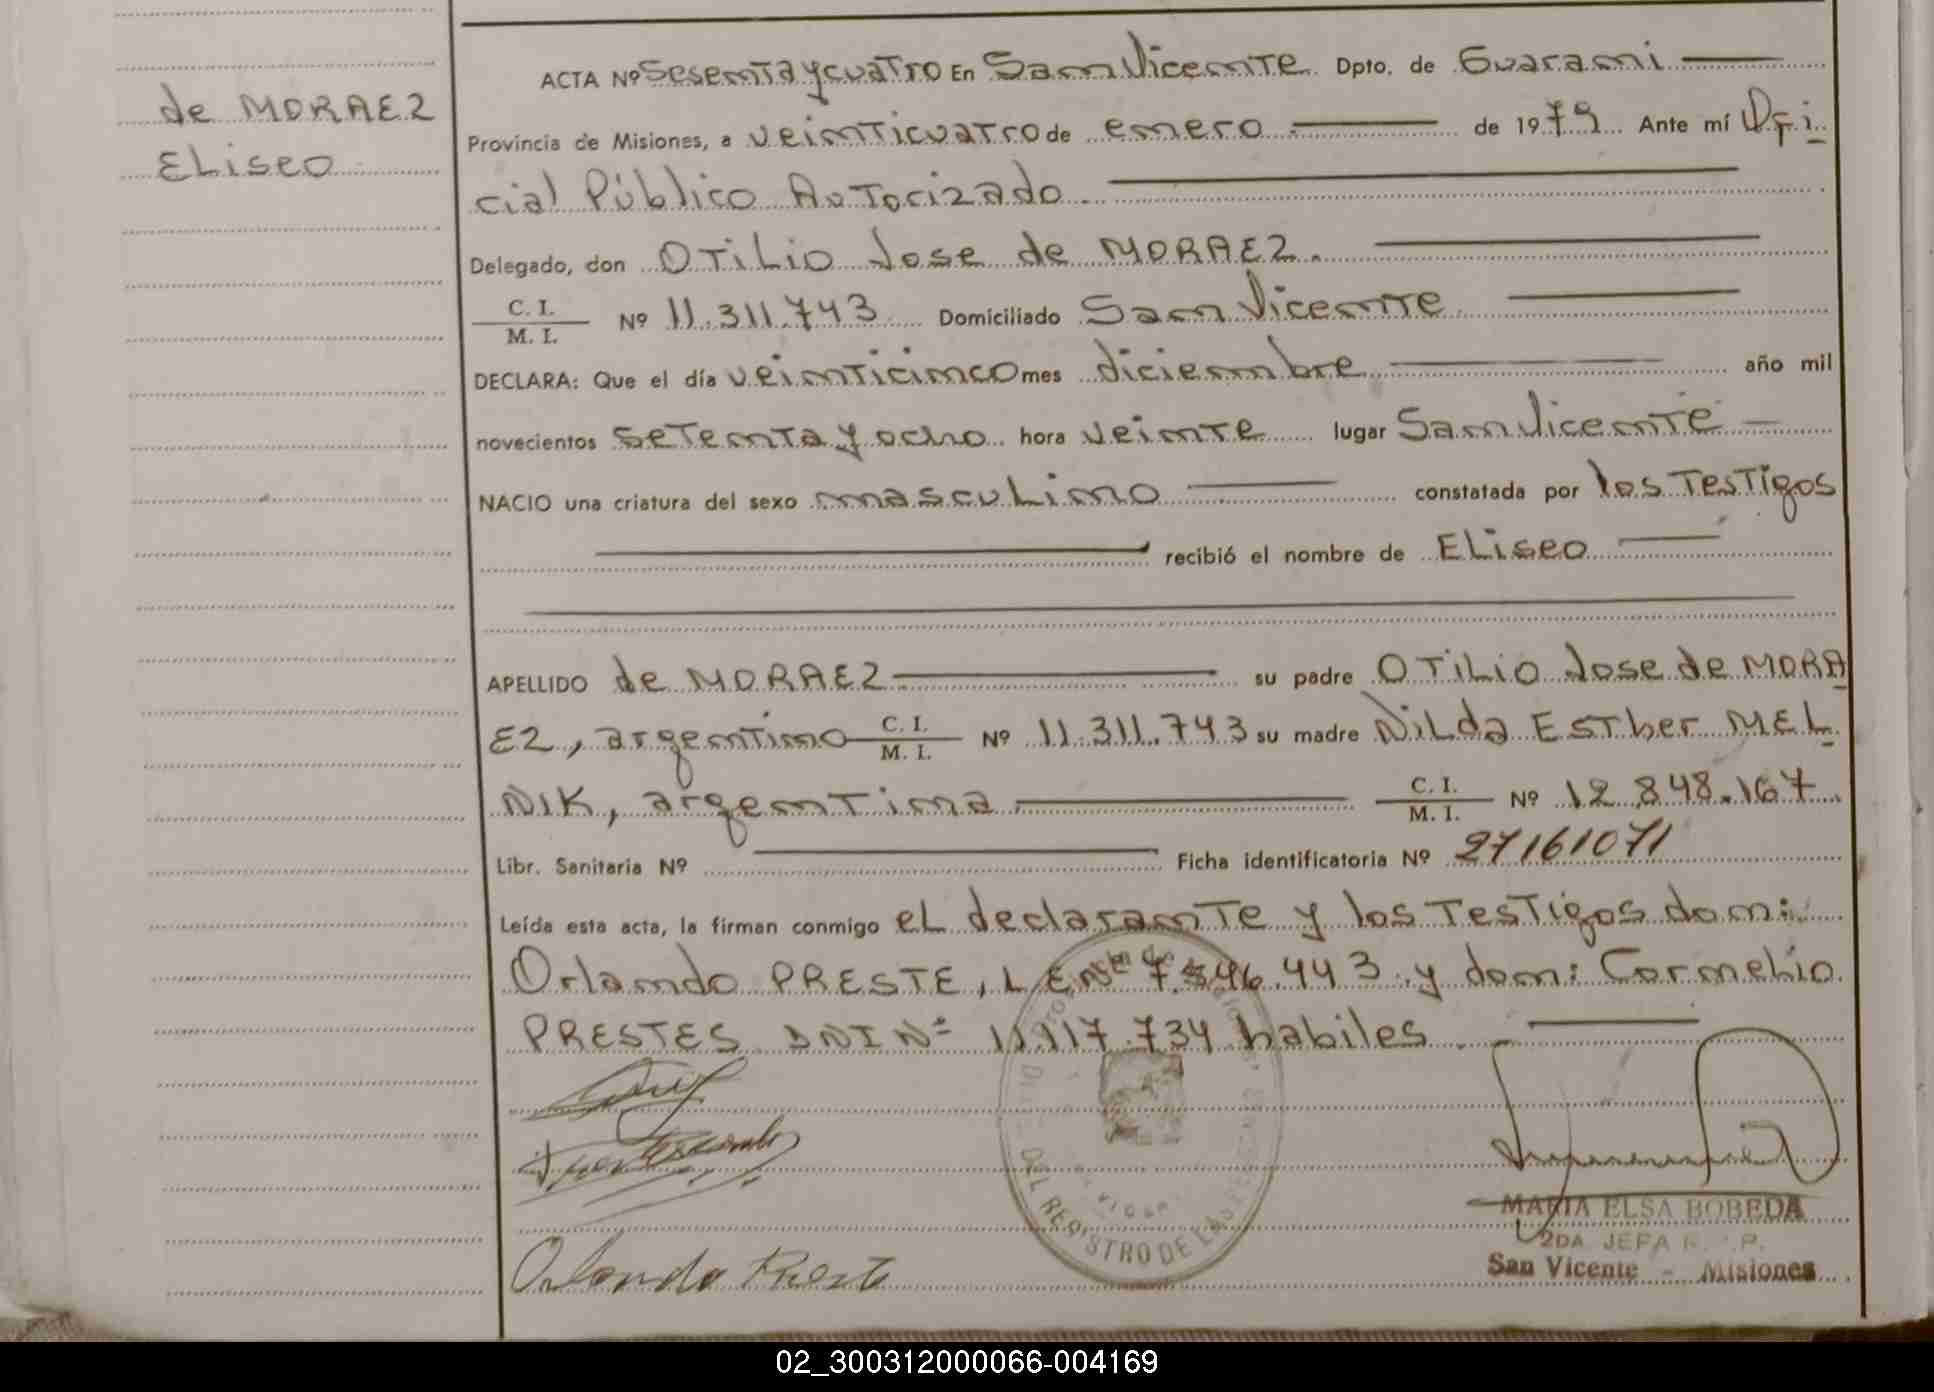 de MORAEZ
ELISEO
ACTA Nº Sesenta y cuatro En San Vicente Dpto. de Guarani
Provincia de Misiones, a veinticuatro de enero de 1979 Ante mí Ofi
cial Público Autorizado
Delegado, don OTILIO Jose de MORAEZ.
C. I.
M. I. Nº 11.311.743 Domiciliado San Vicente
DECLARA: Que el día veinticinco mes diciembre año mil
novecientos setenta y ocho hora veinte lugar San Vicente
NACIO una criatura del sexo masculino constatada por los Testigos
recibió el nombre de ELISEO
APELLIDO de MORAEZ su padre OTILIO Jose de MORA
EZ, argentino C. I. M. I. Nº 11.311.743 su madre NILda ESTher MEL
NIK, argentina C. I. M. I. Nº 12.848.167
Libr. Sanitaria Nº Ficha identificatoria Nº 27161071
Leída esta acta, la firman conmigo el declarante y los Testigos don:
Orlando PRESTE, L E Nº 7.546.443 y don: Cornelio
PRESTES DNI Nº 11.117.734 habiles.
DEL REGISTRO DE LAS PERSONAS
Orlando Preste
MARIA ELSA BOBEDA
2DA JEFA R. P.
San Vicente - Misiones
02_300312000066-004169